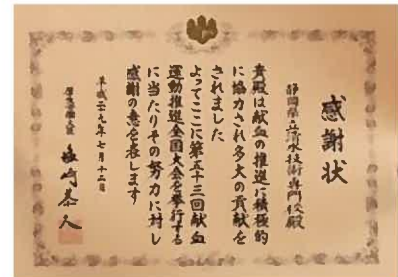 感謝状
静岡県立清水技術専門校殿
貴殿は献血の推進に積極的
に協力され多大の貢献を
されました
よってここに第五十三回献血
運動推進全国大会を挙行する
に当たりその努力に対し
感謝の意を表します
平成二十九年七月十二日
厚生労働大臣 塩崎恭久